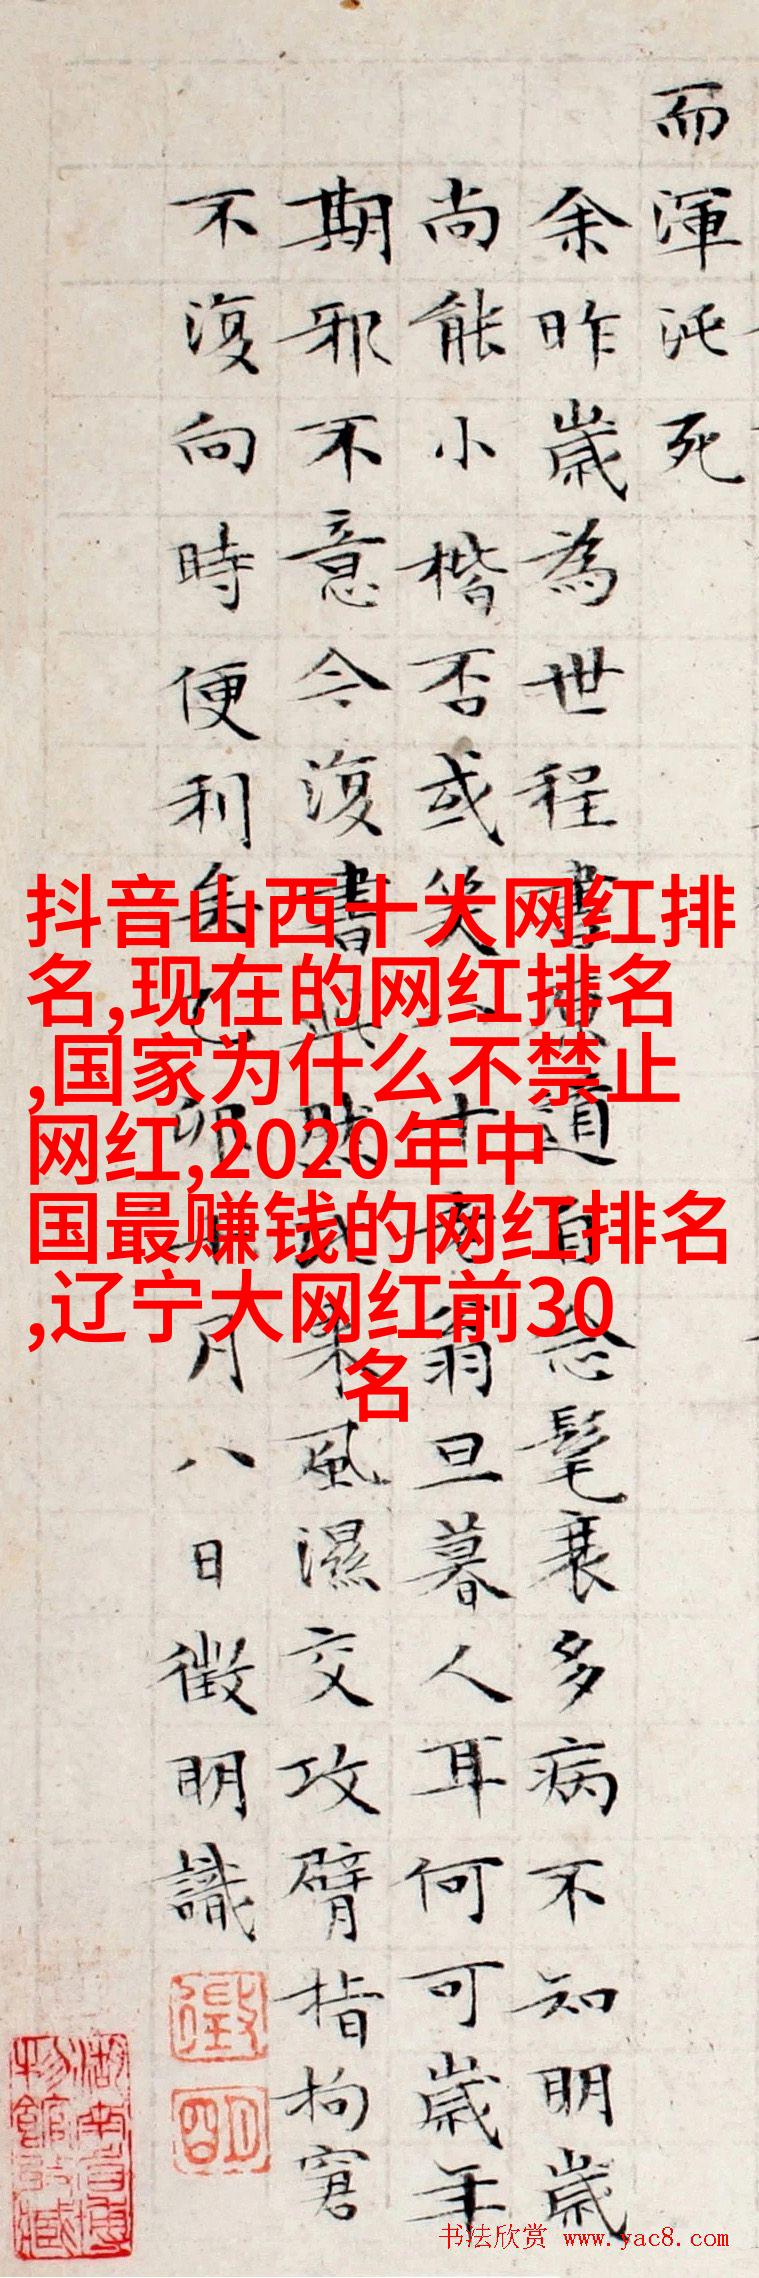 而渾沌死
余昨歲為世程書道自念髦衰多病不知明歲
尚能小楷否或笑十老翁旦暮人耳何可歲年
期邪不意今復書此然來風濕交攻臂指拘窘
不復向時便利矣月八日徵明識
徵
明
抖音山西十大网红排
名,现在的网红排名
,国家为什么不禁止
网红,2020年中
国最赚钱的网红排名
,辽宁大网红前30
名
书法欣赏 www.yac8.com